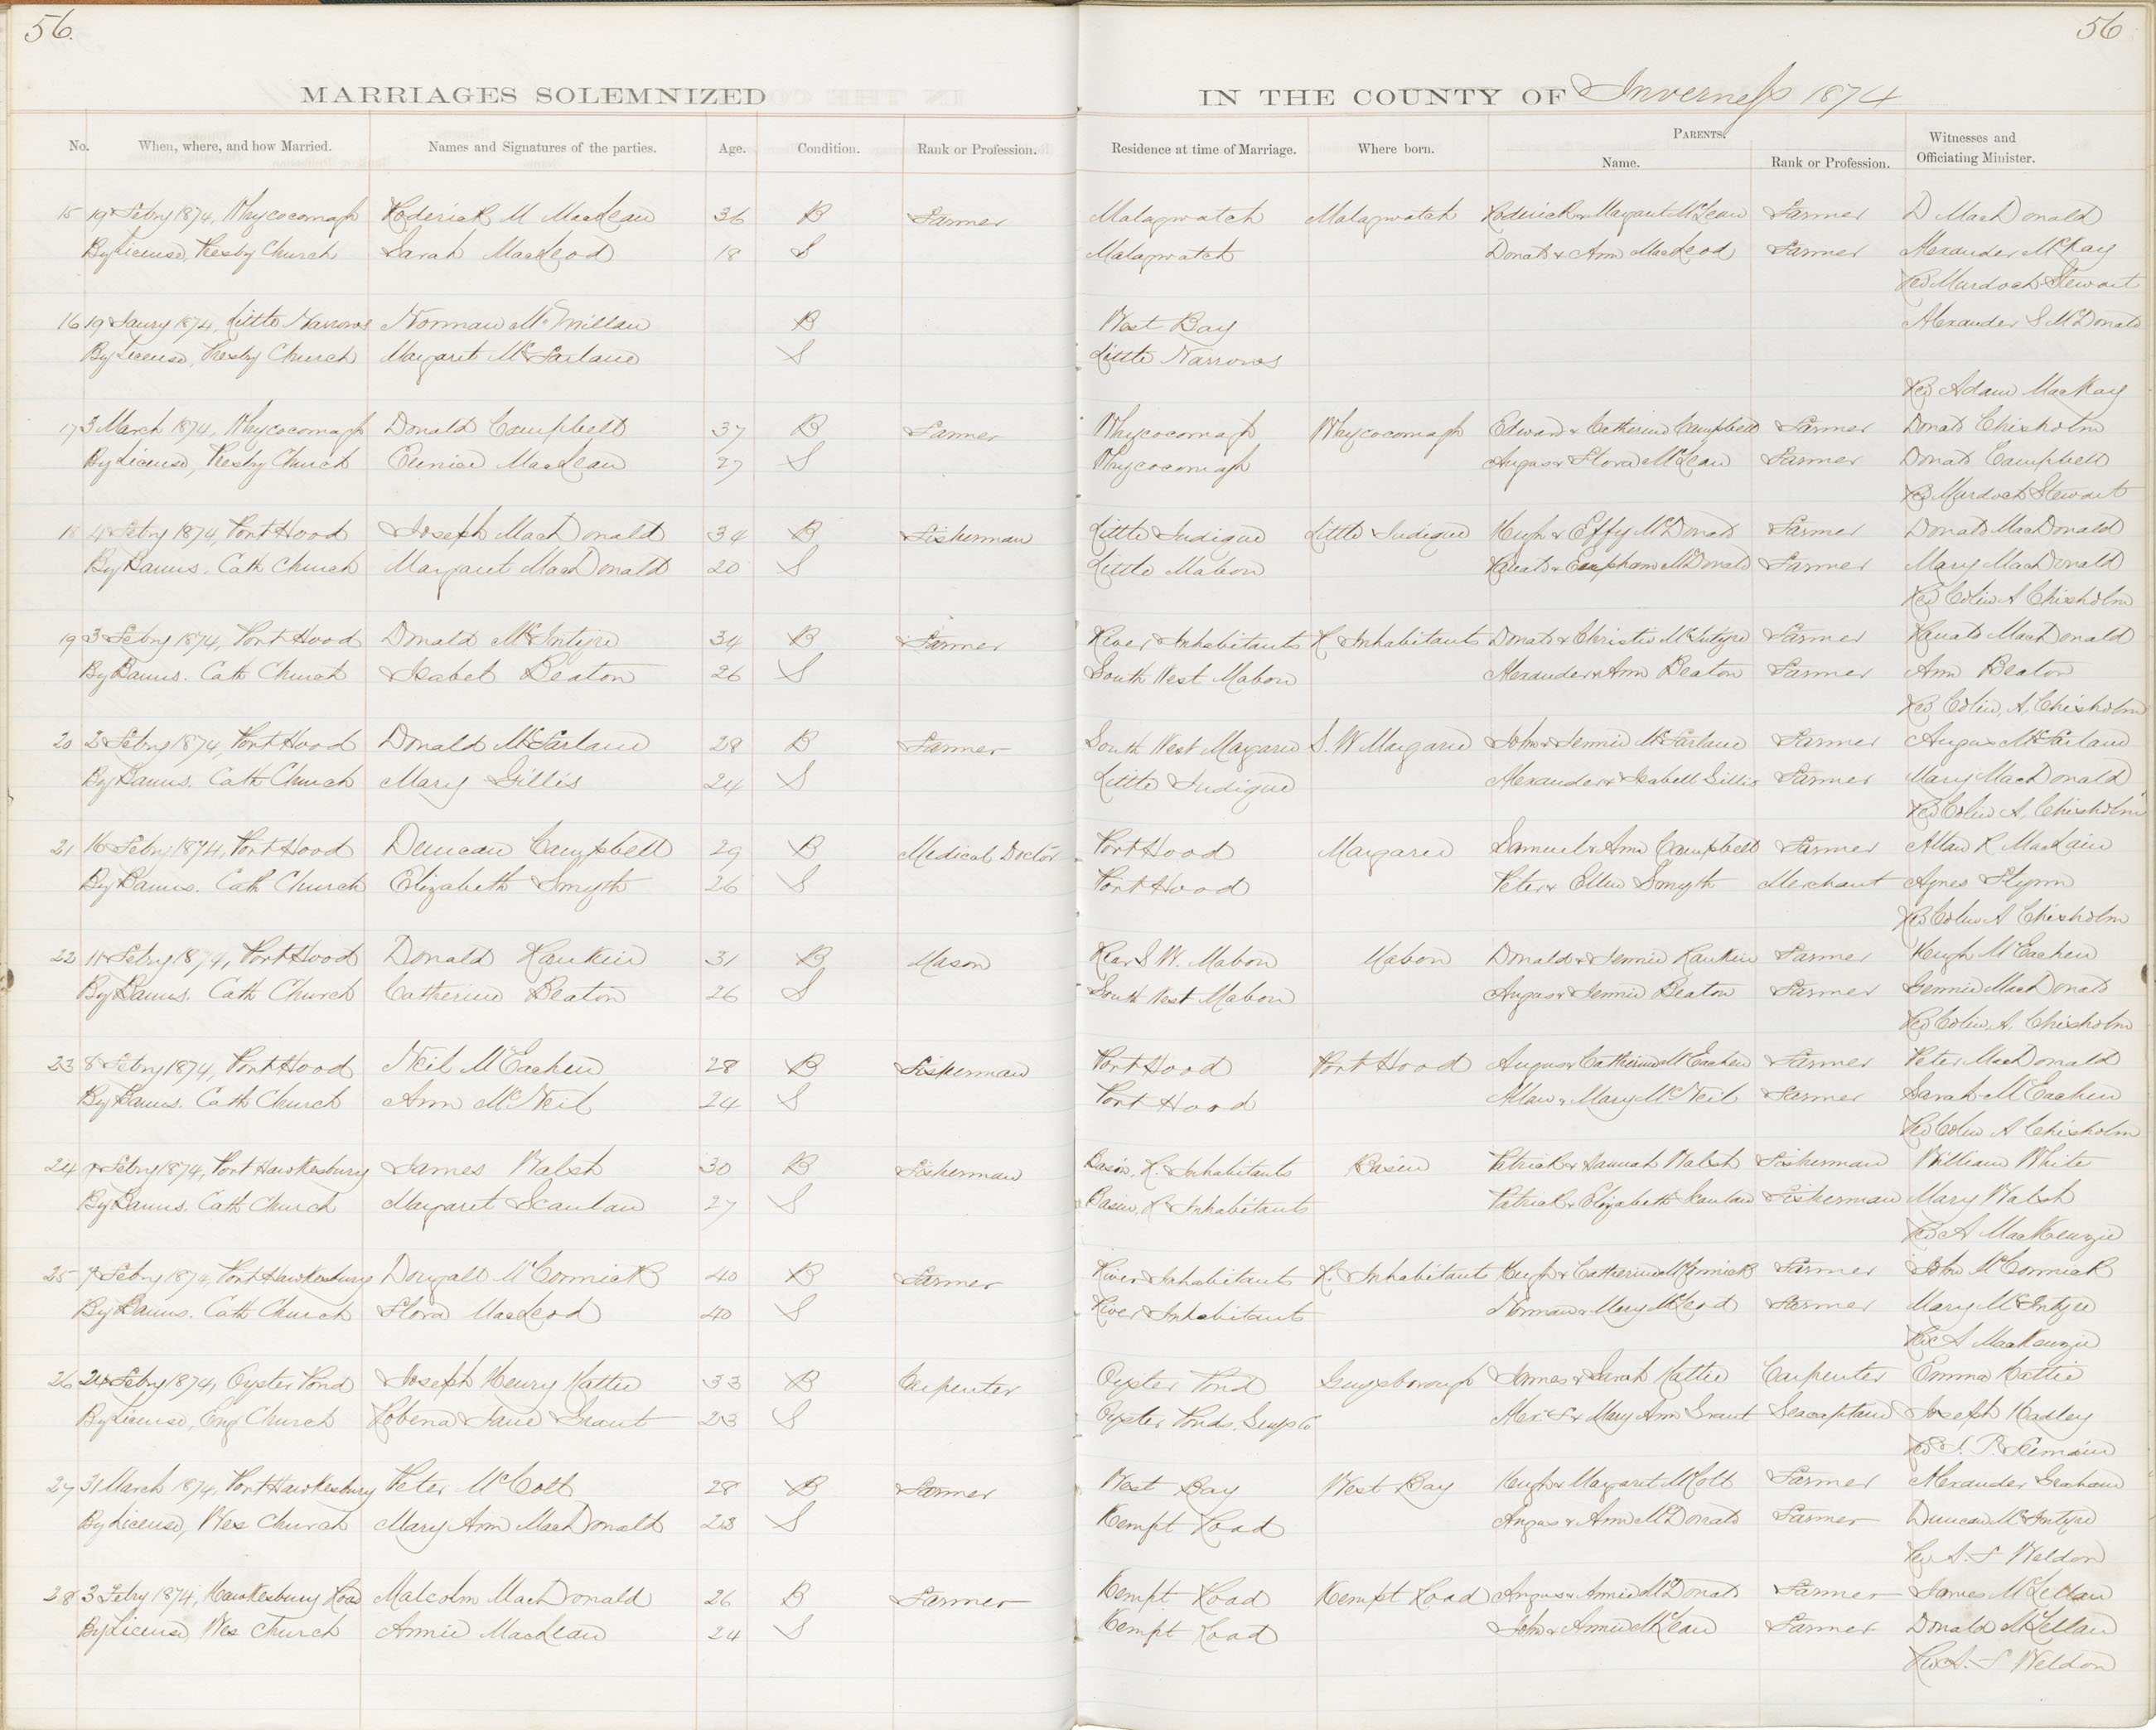 56.
56
MARRIAGES SOLEMNIZED IN THE COUNTY OF Inverness 1874
No. When, where, and how Married. Names and Signatures of the parties. Age. Condition. Rank or Profession. Residence at time of Marriage. Where born. PARENTS. Name. Rank or Profession. Witnesses and Officiating Minister.
15 19 Febry 1874, Whycocomagh Roderick M MacLean 36 B Farmer Malagwatch Malagwatch Roderick & Margaret McLean Farmer D MacDonald
By License, Presby Church Sarah MacLeod 18 S Malagwatch Donald & Ann MacLeod Farmer Alexander McKay
Rev Murdoch Stewart
16 19 Janry 1874, Little Narrows Norman McMillan B West Bay Alexander S McDonald
By License, Presby Church Margaret McFarlane S Little Narrows
Rev Adam MacKay
17 3 March 1874, Whycocomagh Donald Campbell 37 B Farmer Whycocomagh Whycocomagh Edward & Catherine Campbell Farmer Donald Chisholm
By License, Presby Church Eunice MacLean 27 S Whycocomagh Angus & Flora McLean Farmer Donald Campbell
Rev Murdoch Stewart
18 4 Febry 1874, Port Hood Joseph MacDonald 34 B Fisherman Little Judique Little Judique Hugh & Effy McDonald Farmer Donald MacDonald
By Banns. Cath Church Margaret MacDonald 20 S Little Mabou Ranald & Eupham McDonald Farmer Mary MacDonald
Rev Colin A Chisholm
19 3 Febry 1874, Port Hood Donald McIntyre 34 B Farmer River Inhabitants R. Inhabitants Donald & Christie McIntyre Farmer Ranald MacDonald
By Banns. Cath Church Isabel Beaton 26 S South West Mabou Alexander & Ann Beaton Farmer Ann Beaton
Rev Colin, A, Chisholm
20 2 Febry 1874, Port Hood Donald McFarlane 28 B Farmer South West Margaree S. W Margaree John & Jennie McFarlane Farmer Angus McFarland
By Banns. Cath Church Mary Gillis 24 S Little Judique Alexander & Isabell Gillis Farmer Mary MacDonald
Rev Colin A, Chisholm
21 16 Febry 1874, Port Hood Duncan Campbell 29 B Medical Doctor Port Hood Margaree Samuel & Ann Campbell Farmer Allan R MacLain
By Banns. Cath Church Elizabeth Smyth 26 S Port Hood Peter & Ellen Smyth Merchant Agnes Flynn
Rev Colin A Chisholm
22 11 Febry 1874, Port Hood Donald Rankin 31 B Mason Rear S W. Mabou Mabou Donald & Jennie Rankin Farmer Hugh McEachen
By Banns. Cath Church Catherine Beaton 26 S South West Mabou Angus & Jennie Beaton Farmer Jennie MacDonald
Rev Colin A. Chisholm
23 8 Febry 1874, Port Hood Neil McEachen 28 B Fisherman Port Hood Port Hood Angus & Catherine McEachen Farmer Peter MacDonald
By Banns. Cath Church Ann McNeil 24 S Port Hood Allan & Mary McNeil Farmer Sarah McEachen
Rev Colin A Chisholm
24 9 Febry 1874, Port Hawkesbury James Walsh 30 B Fisherman Basin. R. Inhabitants Basin Patrick & Hannah Walsh Fisherman William White
By Banns. Cath Church Margaret Scanlan 27 S Basin. R Inhabitants Patrick & Elizabeth Scanlan Fisherman Mary Walsh
Rev A MacKenzie
25 9 Febry 1874, Port Hawkesbury Dougald McCormick 40 B Farmer River Inhabitants R. Inhabitants Hugh & Catherine McCormick Farmer John McCormick
By Banns. Cath Church Flora MacLeod 40 S River Inhabitants Norman & Mary McLeod Farmer Mary McIntyre
Rev A MacKenzie
26 24 Febry 1874, Oyster Pond Joseph Henry Hattie 33 B Carpenter Oyster Pond Guysborough James & Sarah Hattie Carpenter Emma Hattie
By License, Eng Church Robena Jane Grant 23 S Oyster Ponds, Guys Co Alex & Mary Ann Grant Seacaptain Joseph Hadley
27 31 March 1874, Port Hawkesbury Peter McColl 28 B Farmer West Bay West Bay Hugh & Margaret McColl Farmer Alexander Graham
By License, Wes Church Mary Ann MacDonald 23 S Kempt Road Angus & Ann McDonald Farmer Duncan McIntyre
Rev A. S Weldon
28 3 Febry 1874, Hawkesbury Road Malcolm MacDonald 26 B Farmer Kempt Road Kempt Road Angus & Annie McDonald Farmer James McLellan
By License, Wes Church Annie MacLean 24 S Kempt Road John & Annie McLean Farmer Donald McLellan
Rev A. S Weldon